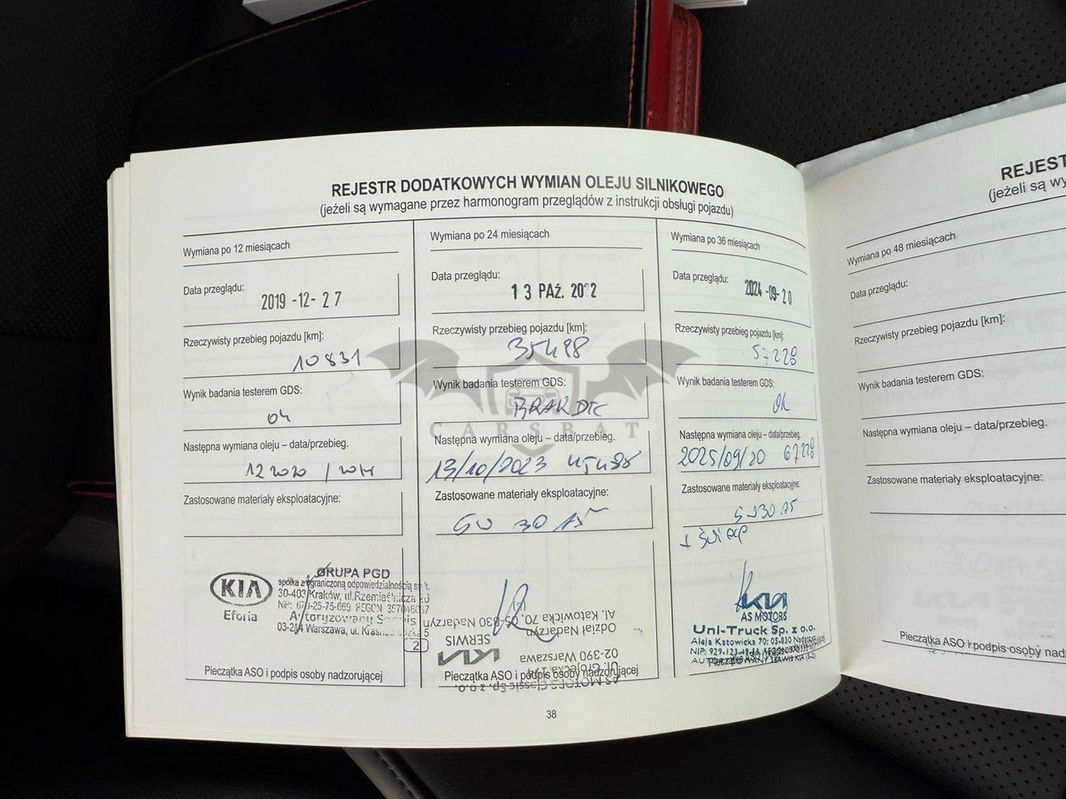 REJESTR DODATKOWYCH WYMIAN OLEJU SILNIKOWEGO
(jeżeli są wymagane przez harmonogram przeglądów z instrukcji obsługi pojazdu)
Wymiana po 12 miesiącach
Data przeglądu:
2019-12-27
Rzeczywisty przebieg pojazdu [km]:
10831
Wynik badania testerem GDS:
Następna wymiana oleju – data/przebieg.
Zastosowane materiały eksploatacyjne:
KIA
Eforia
GRUPA PGD
spółka z ograniczoną odpowiedzialnością sp.k.
30-403 Kraków, ul.Rzemieślnicza
Autoryzowany Serwis
03-214 Warszawa, ul.
Pieczątka ASO i podpis osoby nadzorującej
Wymiana po 24 miesiącach
Data przeglądu:
13 PAŹ. 2022
Rzeczywisty przebieg pojazdu [km]:
35498
Wynik badania testerem GDS:
BRAK DTC
Następna wymiana oleju – data/przebieg.
13/10/2023
Zastosowane materiały eksploatacyjne:
5W 30 A5
Al. Katowicka 70, 05-830 Nadarzyn
Odział Nadarzyn
SERWIS
02-390 Warszawa
KIA
Pieczątka ASO i podpis osoby nadzorującej
Wymiana po 36 miesiącach
Data przeglądu:
2024-09-20
Rzeczywisty przebieg pojazdu [km]:
57228
Wynik badania testerem GDS:
OK
Następna wymiana oleju – data/przebieg.
2025/09/20 67228
Zastosowane materiały eksploatacyjne:
5W30 A5
KIA
AS MOTORS
Uni-Truck Sp. z o.o.
Aleja Katowicka 70; 05-830 Nadarzyn
Pieczątka ASO i podpis osoby nadzorującej
CARSBAT
38
REJEST
(jeżeli są wy
Wymiana po 48 miesiącach
Data przeglądu:
Rzeczywisty przebieg pojazdu [km]:
Wynik badania testerem GDS:
Następna wymiana oleju – data/przebieg.
Zastosowane materiały eksploatacyjne:
Pieczątka ASO i podpis osoby nadz